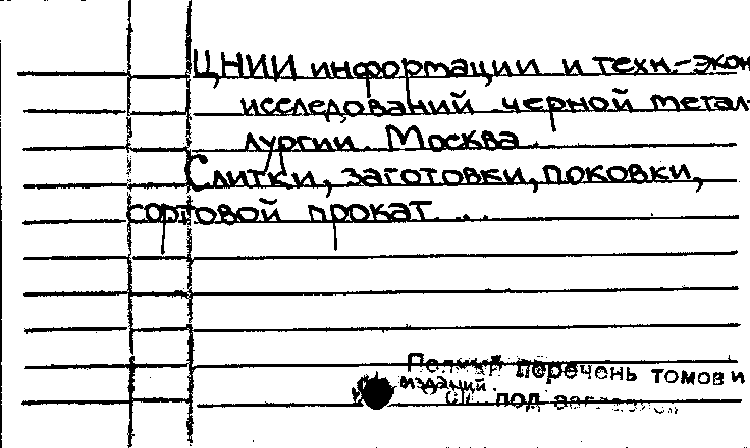 ЦНИИ информации и техн.-экон
исследований черной метал-
лургии. Москва.
Слитки, заготовки, поковки,
сортовой прокат...
Полный перечень томов и
изданий
под